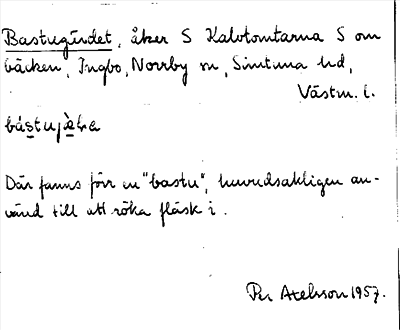 Bastugärdet, åker S Kalvtomtarna S om
bäcken, Ingbo, Norrby sn, Simtuna hd,
Västm. l.
Där fanns förr en "bastu", huvudsakligen an-
vänd till att röka fläsk i.
Per Axelsson 1957.